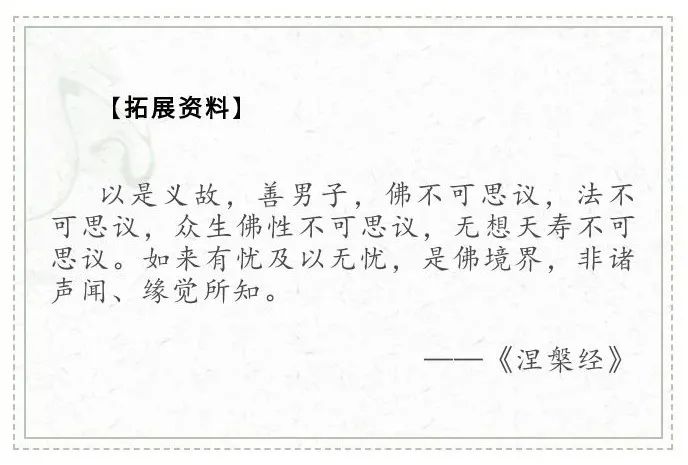 【拓展资料】
以是义故，善男子，佛不可思议，法不
可思议，众生佛性不可思议，无想天寿不可
思议。如来有忧及以无忧，是佛境界，非诸
声闻、缘觉所知。
——《涅槃经》